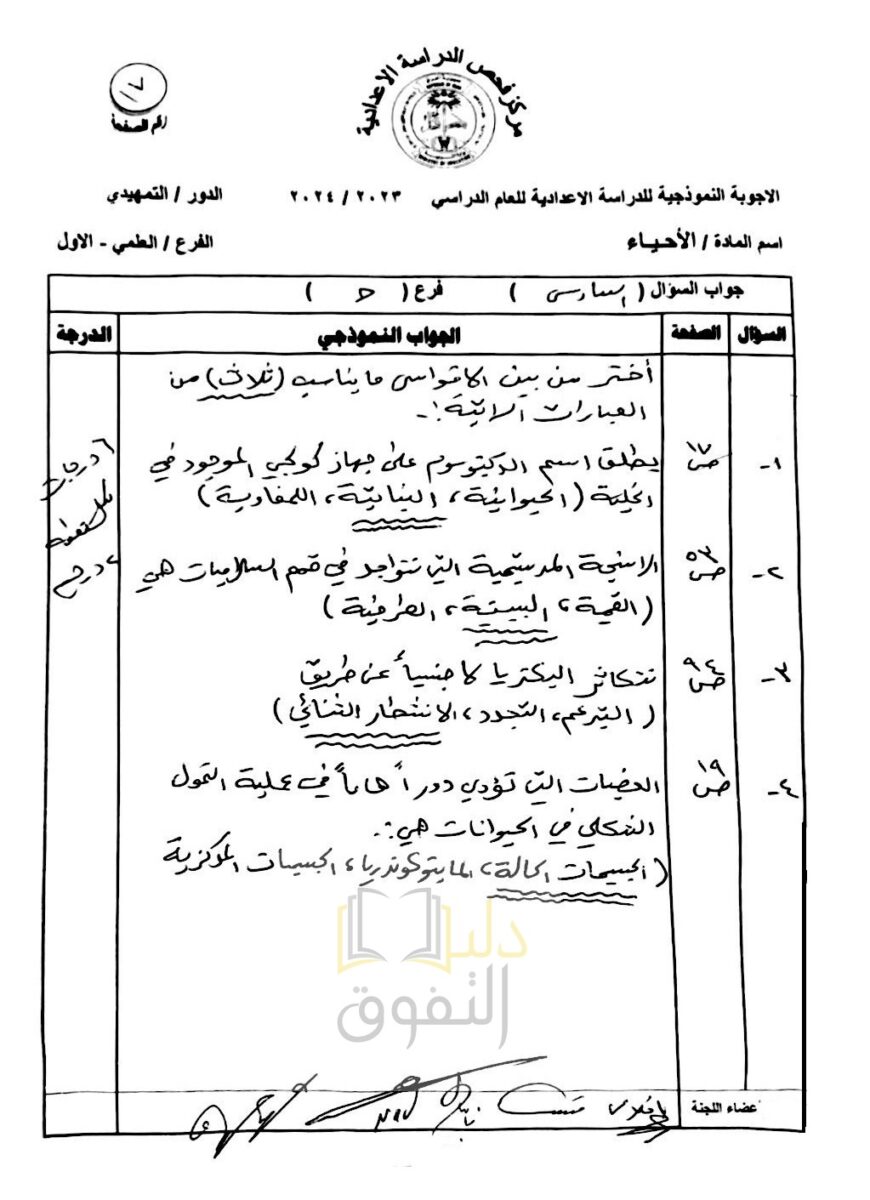 مركز فحص الدراسة الاعدادية
١٧
رقم الصفحة
الاجوبة النموذجية للدراسة الاعدادية للعام الدراسي ٢٠٢٣ / ٢٠٢٤ الدور / التمهيدي
اسم المادة / الأحياء الفرع / العلمي - الاول
جواب السؤال ( السادس ) فرع ( )
السؤال الصفحة الجواب النموذجي الدرجة
أختر من بين الاقواس ما يناسب (ثلاث) من
العبارات الآتية :-
١- ص ١٧ يطلق اسم الدكتيوسوم على جهاز كولجي الموجود في
الخلية (الحيوانية، النباتية، اللمفاوية)
٢- ص ٥٣ الانسجة المرستيمية التي تتواجد في قمم السلاميات هي
(القمية، البينية، الطرفية)
٣- ص ٩٤ تتكاثر البكتريا لاجنسياً عن طريق
(التبرعم، التجدد، الانشطار الثنائي)
٤- ص ١٩ العضيات التي تؤدي دوراً هاماً في عملية التحول
الشكلي في الحيوانات هي :-
(الجسيمات الحالة، المايتوكوندريا، الجسيمات المركزية
٦ درجات
لكل نقطة
٢ درجة
دليل
التفوق
عضاء اللجنة